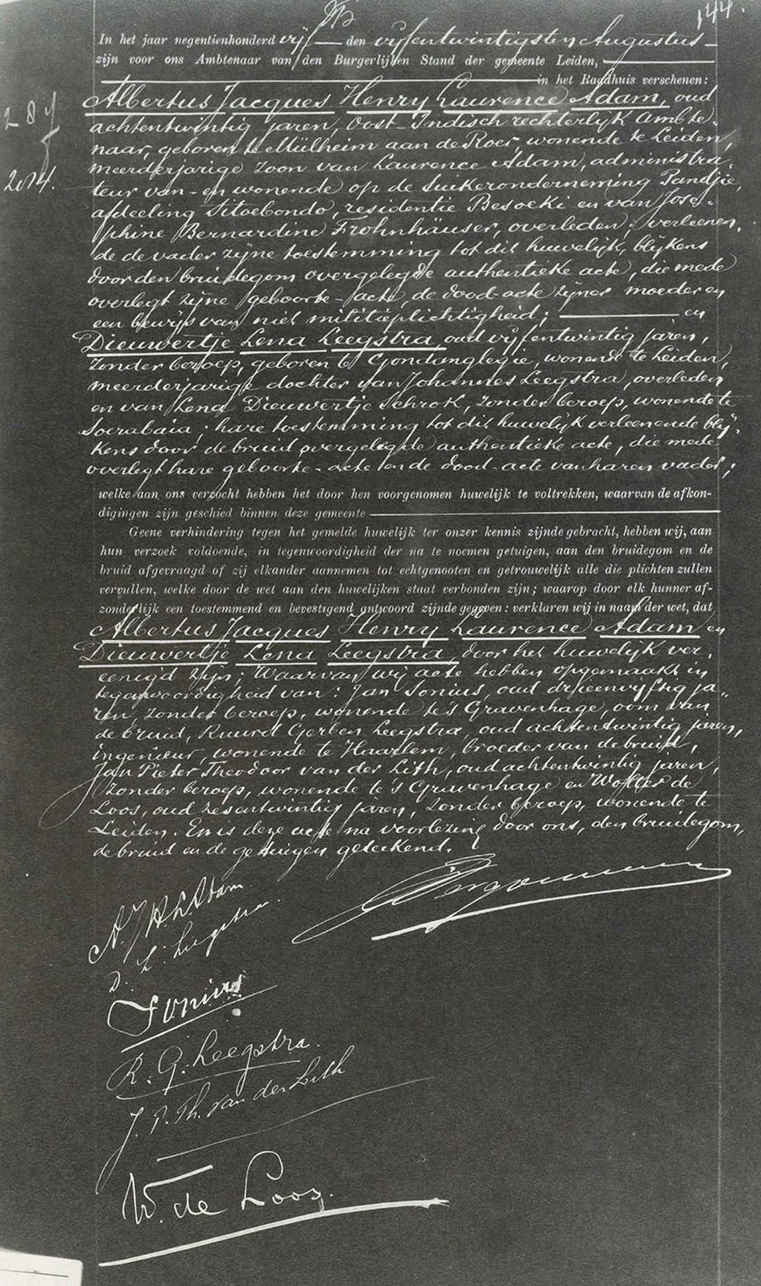 144.
In het jaar negentienhonderd vijf den vijfentwintigsten Augustus
zijn voor ons Ambtenaar van den Burgerlijken Stand der gemeente Leiden,
in het Raadhuis verschenen:
Albertus Jacques Henry Laurence Adam, oud
achtentwintig jaren, Oost-Indisch rechterlijk ambte-
naar, geboren te Mülheim aan de Roer, wonende te Leiden,
meerderjarige zoon van Laurence Adam, administra-
teur van- en wonende op de suikeronderneming Pandjie,
afdeeling Sitoebondo, residentie Besoeki en van Jose-
phine Bernardine Frohnhäuser, overleden; verleenen-
de de vader zijne toestemming tot dit huwelijk, blijkens
door den bruidegom overgelegde authentieke acte, die mede
overlegt zijne geboorte-acte, de dood-acte zijner moeder en
een bewijs van niet militieplichtigheid; en
Dieuwertje Lena Leegstra, oud vijfentwintig jaren,
zonder beroep, geboren te Gondanglegie, wonende te Leiden,
meerderjarige dochter van Johannes Leegstra, overleden
en van Lena Dieuwertje Schrok, zonder beroep, wonende te
Soerabaia; hare toestemming tot dit huwelijk verleenende blij-
kens door de bruid overgelegde authentieke acte, die mede
overlegt hare geboorte-acte en de dood-acte van haren vader;
welke aan ons verzocht hebben het door hen voorgenomen huwelijk te voltrekken, waarvan de afkon-
digingen zijn geschied binnen deze gemeente
Geene verhindering tegen het gemelde huwelijk ter onzer kennis zijnde gebracht, hebben wij, aan
hun verzoek voldoende, in tegenwoordigheid der na te noemen getuigen, aan den bruidegom en de
bruid afgevraagd of zij elkander aannemen tot echtgenooten en getrouwelijk alle die plichten zullen
vervullen, welke door de wet aan den huwelijken staat verbonden zijn; waarop door elk hunner af-
zonderlijk een toestemmend en bevestigend antwoord zijnde gegeven: verklaren wij in naam der wet, dat
Albertus Jacques Henry Laurence Adam en
Dieuwertje Lena Leegstra door het huwelijk ver-
eenigd zijn; Waarvan wij acte hebben opgemaakt in
tegenwoordigheid van: Jan Sonius, oud drieenvijftig ja-
ren, zonder beroep, wonende te 's Gravenhage, oom van
de bruid, Ruurd Gerben Leegstra, oud achtentwintig jaren,
ingenieur, wonende te Haarlem, broeder van de bruid,
Jan Pieter Theodoor van der Lith, oud achtentwintig jaren,
zonder beroep, wonende te 's Gravenhage en Wolter de
Loos, oud zesentwintig jaren, zonder beroep, wonende te
Leiden. En is deze acte na voorlezing door ons, den bruidegom,
de bruid en de getuigen geteekend.
A. J. H. L. Adam
D. L. Leegstra.
JSonius
R. G. Leegstra.
J. P. Th. van der Lith
W. de Loos.